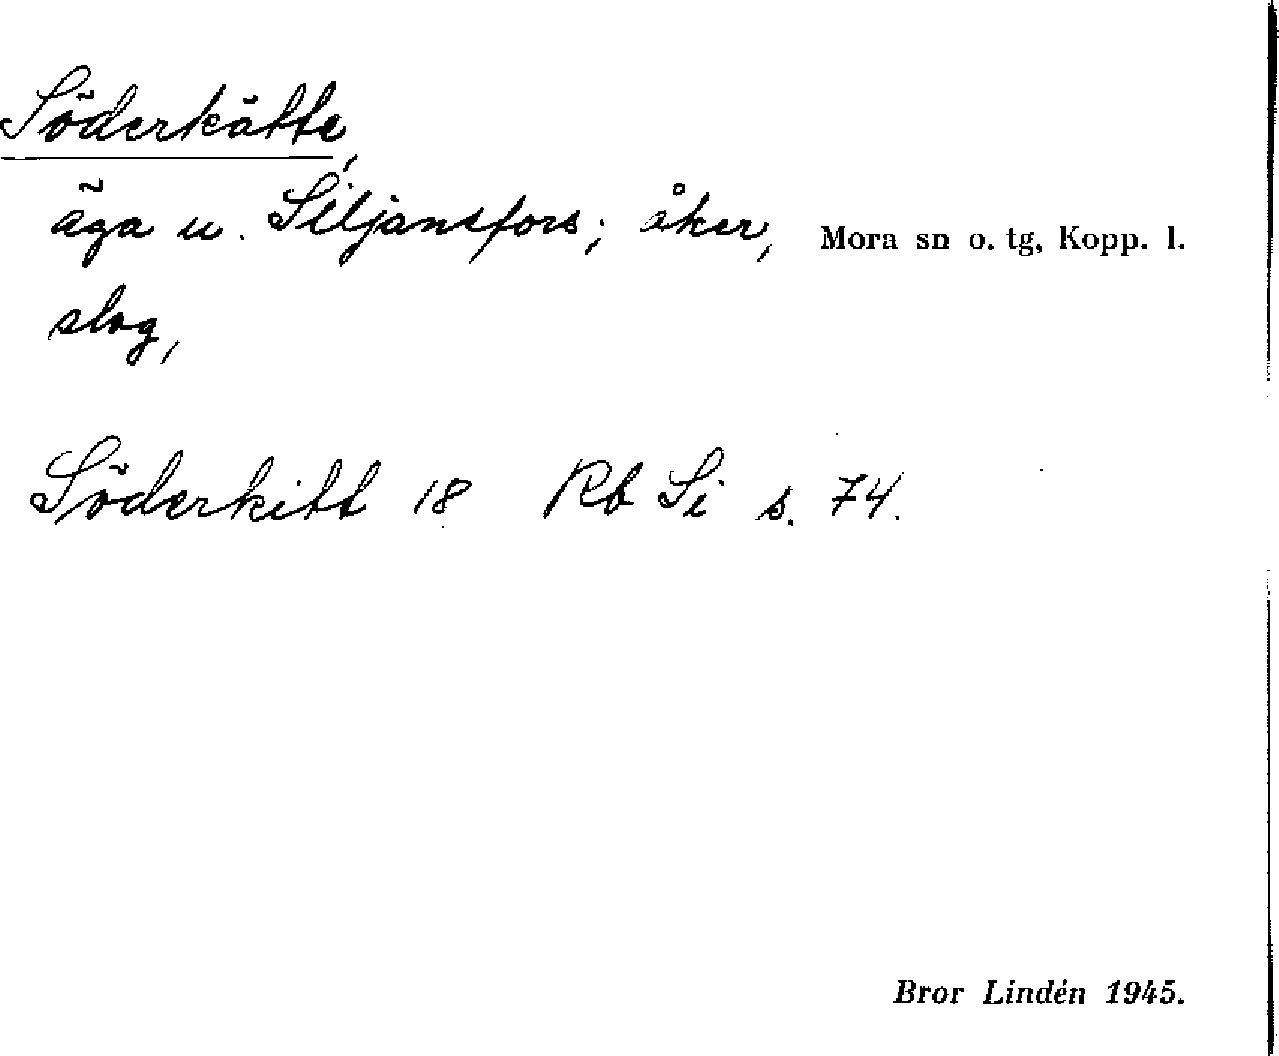 Söderkätte,
äga u. Siljansfors; åker, Mora sn o. tg, Kopp. l.
slog,
Söderkitt 18 Rb Si s. 74.
Bror Lindén 1945.